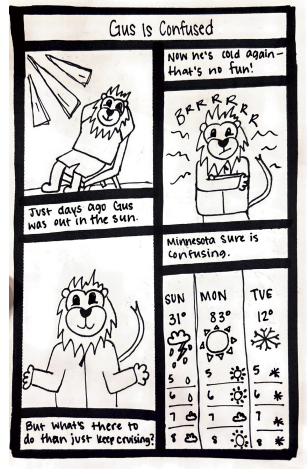 Gus Is Confused
Just days ago Gus
was out in the sun.
Now he's cold again—
that's no fun!
BRRRRRR
Minnesota sure is
confusing.
SUN MON TUE
31° 83° 12°
5 5 5
6 6 6
7 7 7
8 8 8
But what's there to
do than just keep cruising?